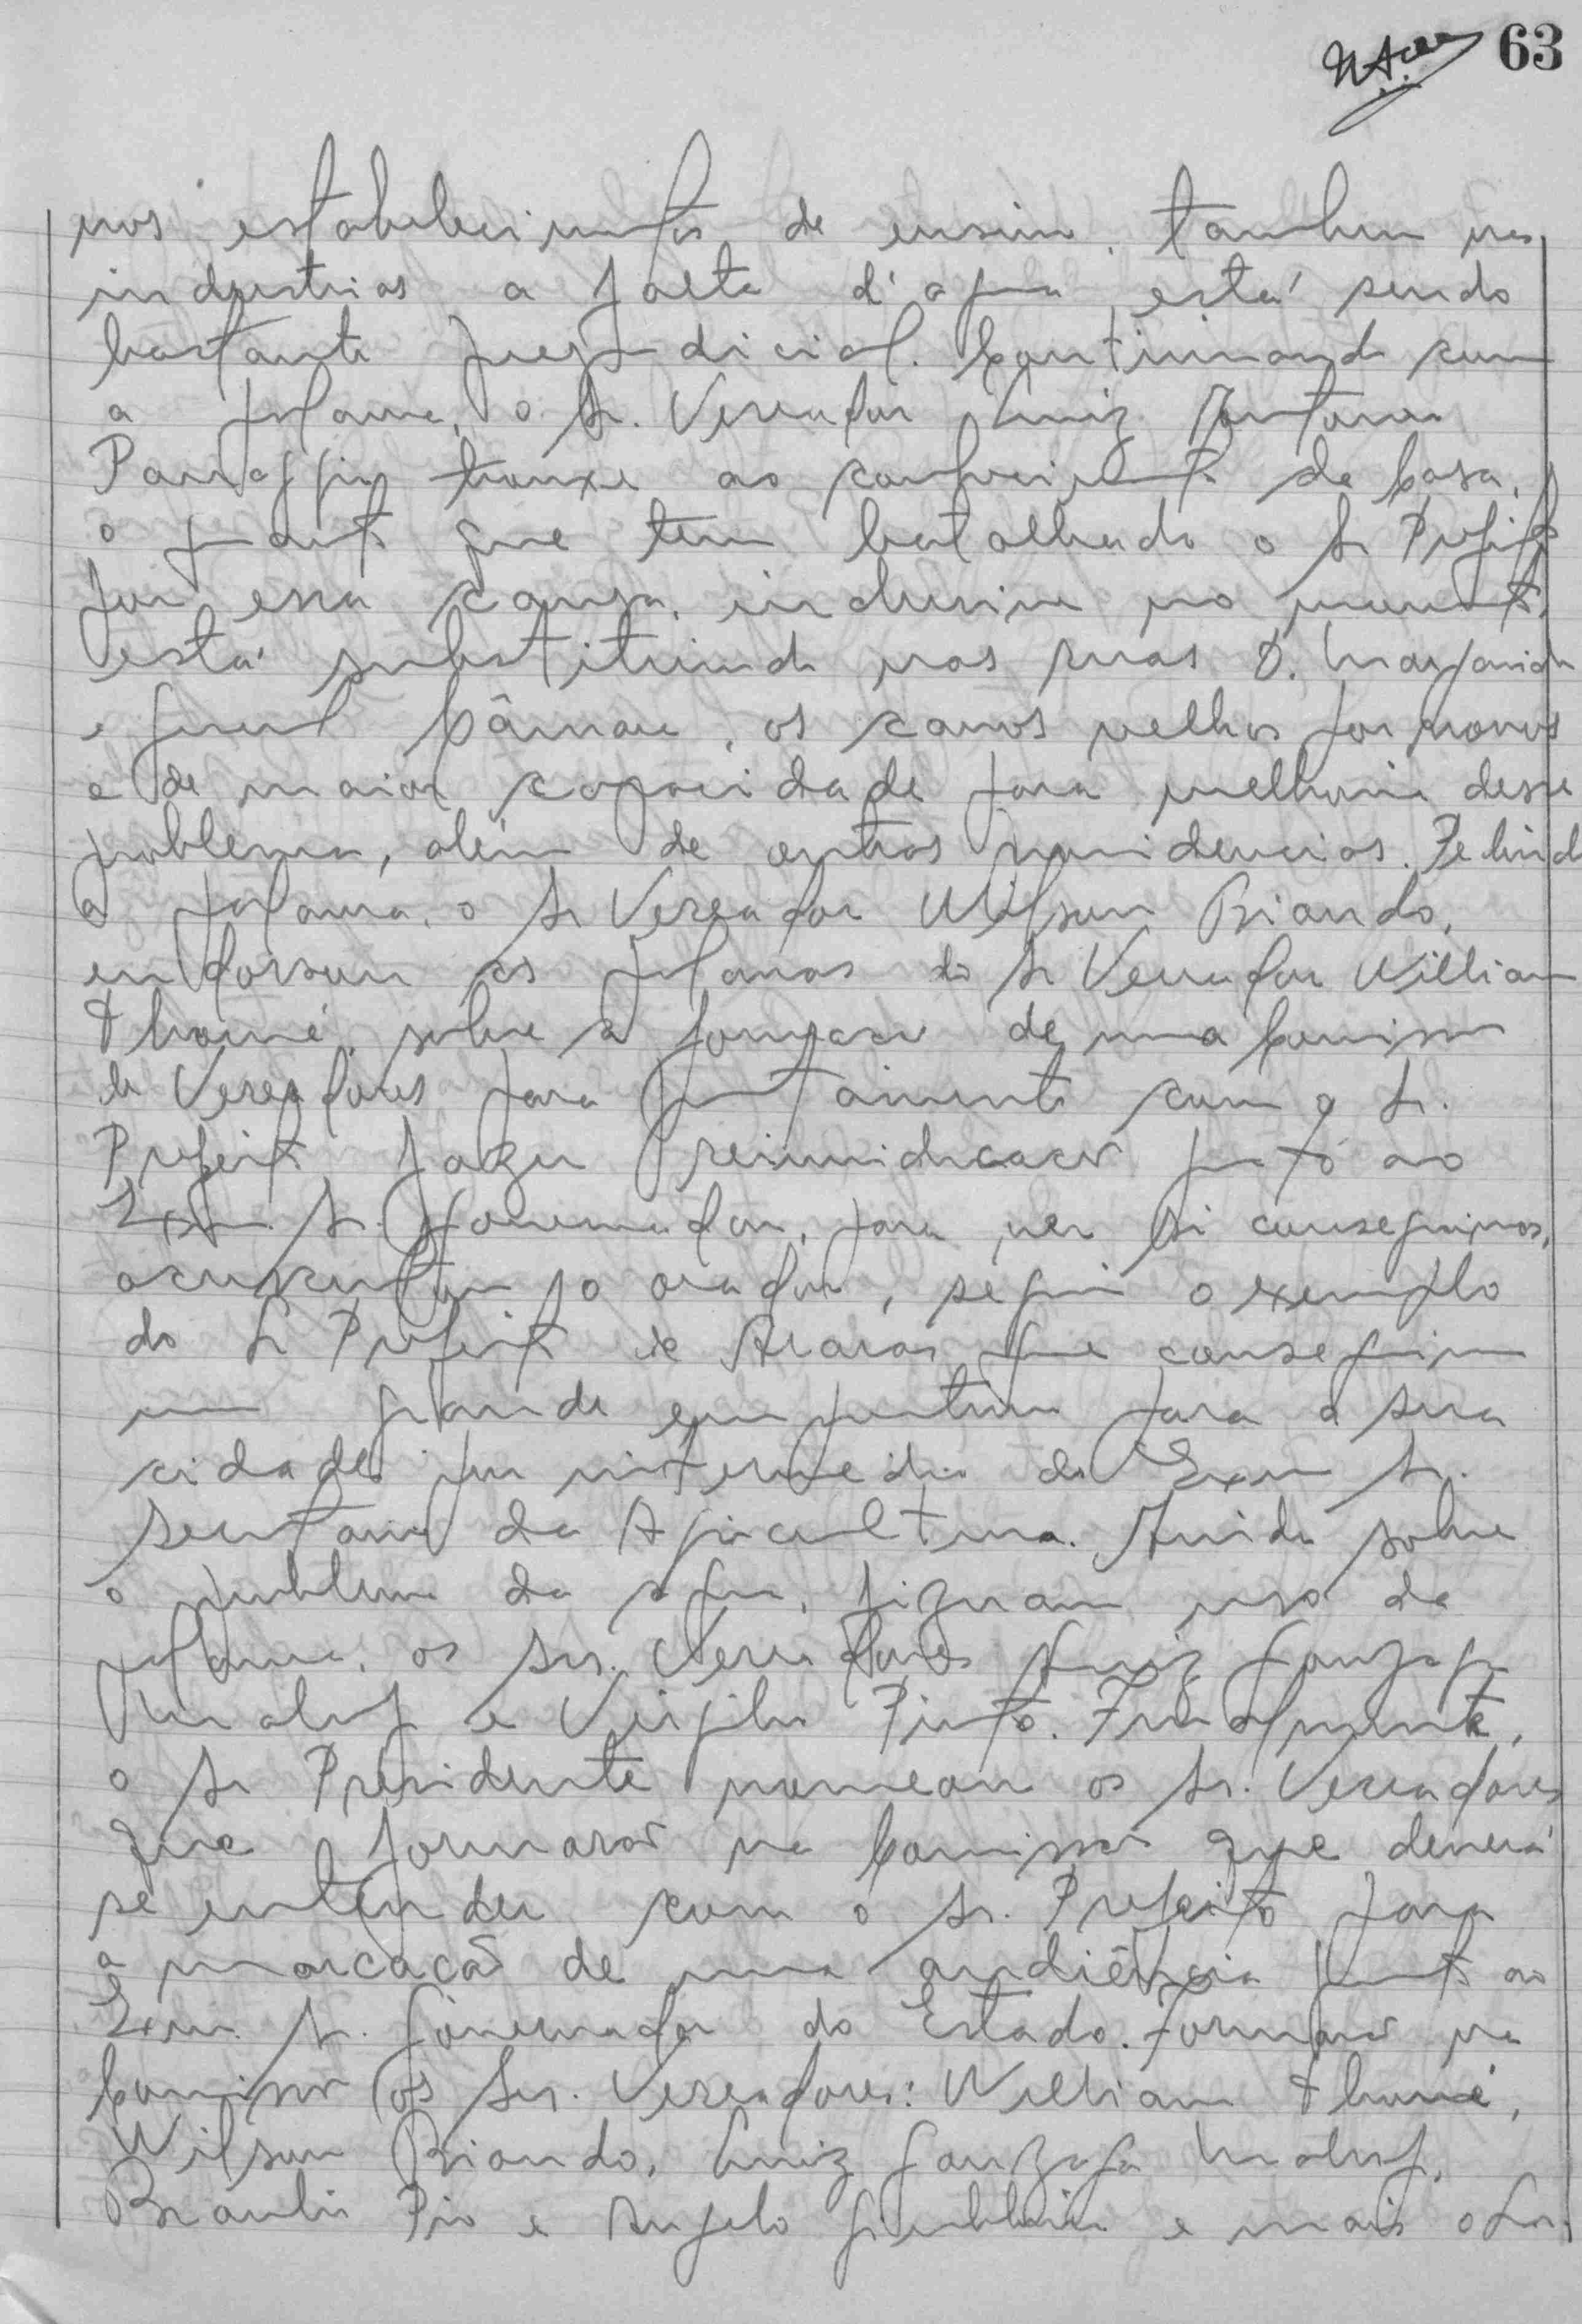 63
nos estabelecimentos de ensino, tambem nas
industrias a falta d'agua, está sendo
bastante prejudicial. Continuando com
a palavra, o Sr. Vereador Luiz Antonio
trouxe ao conhecimento da Casa,
o quanto que tem batalhado o Sr Prefeito
por essa causa, inclusive no momento,
está substituindo nas ruas D. Margarida
e Câmara, os canos velhos por novos
e de maior capacidade para melhoria desse
problema, além de outras providencias. Pedindo
a palavra, o Sr Vereador Wilson Briando,
endorsou as palavras do Sr Vereador William
Thomé, sobre a formação de uma Comissão
de Vereadores para juntamente com o Sr.
Prefeito fazer reinvidicacão junto ao
Exmo. Sr. Governador, para ver si conseguimos,
acrescentou o orador, seguir o exemplo
do Sr Prefeito de Araras que conseguiu
um grande emprestimo para a sua
cidade por intermedio do Exmo Sr.
Secretario da Agricultura. Ainda sobre
o problema da agua, fizeram uso da
palavra, os Srs. Vereadores Luiz Gonzaga
Maluf e Virgilio Pinto. Finalmente,
o Sr Presidente nomeou os Sr. Vereadores
que formarão na Comissão que deverá
se entender com o Sr. Prefeito para
a marcacão de uma audiência junto ao
Exmo. Sr. Governador do Estado. Formarão na
Comissão os Srs. Vereadores: William Thomé,
Wilson Briando, Luiz Gonzaga Maluf,
Braulio Pio e Angelo e mais o Sr.